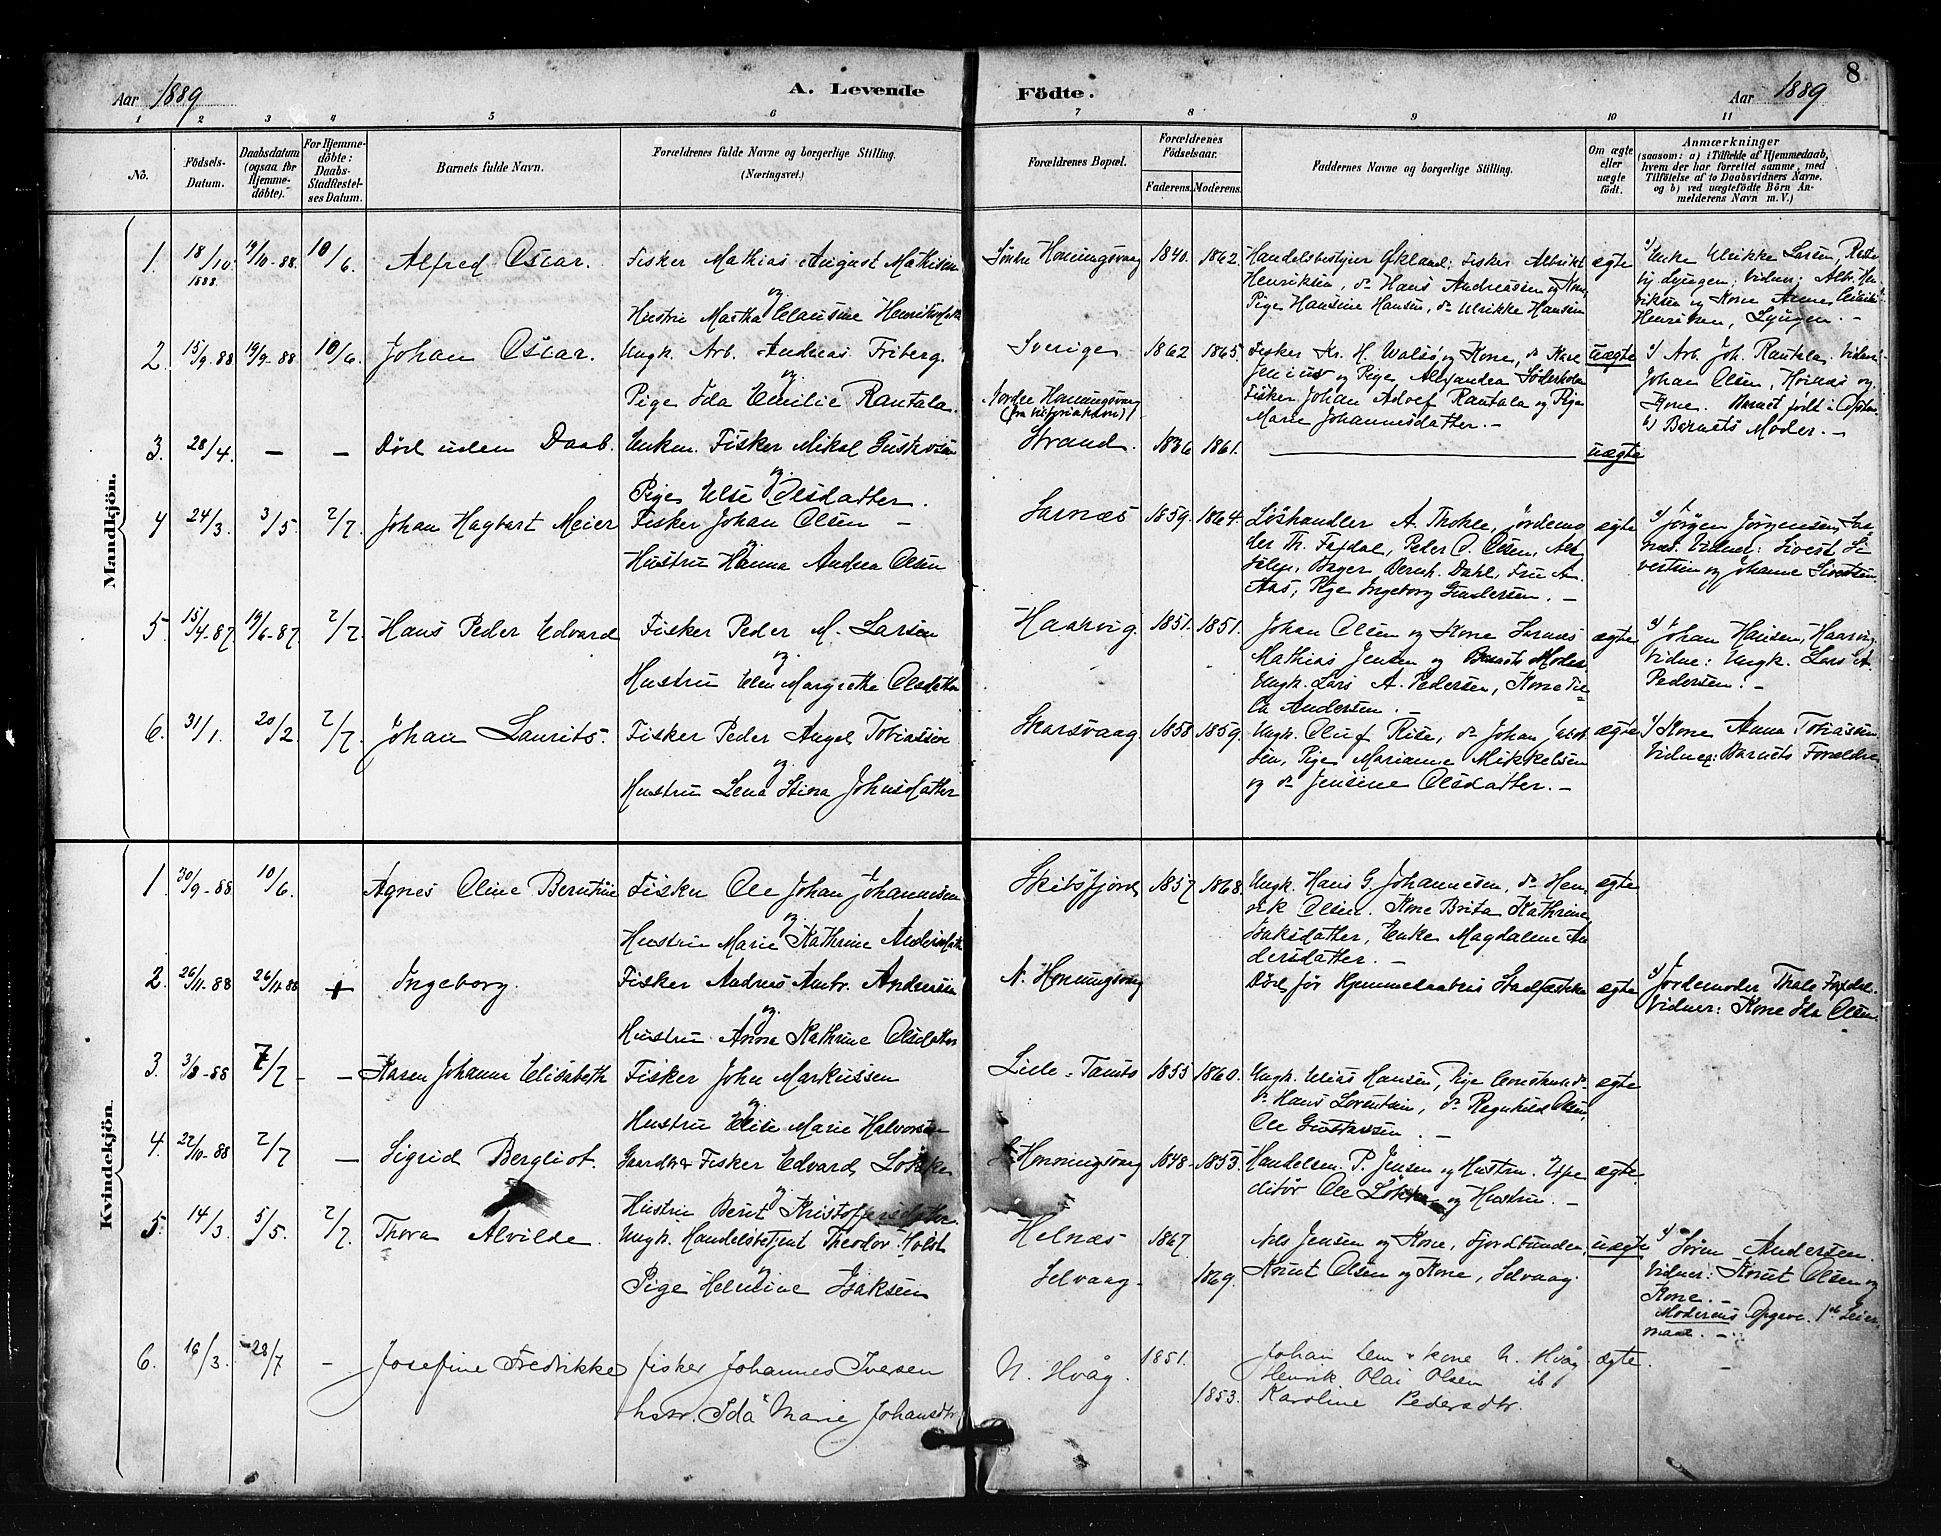 8
Aar 1889
A. Levende Födte.
Aar 1889
1 2 3 4 5 6 7 8 9 10 11
No.
Födsels-Datum.
Daabsdatum (ogsaa for Hjemme-döbte).
For Hjemme-döbte: Daabs-Stadfæstel-ses Datum.
Barnets fulde Navn.
Forældrenes fulde Navne og borgerlige Stilling.
(Næringsvei.)
Forældrenes Bopæl.
Forældrenes Födselsaar.
Faderens. Moderens.
Faddernes Navne og borgerlige Stilling.
Om ægte eller uægte födt.
Anmærkninger
(saasom: a) i Tilfælde af Hjemmedaab,
hvem der har forrettet samme, med
Tilföielse af to Daabsvidners Navne,
og b) ved uægtefödte Börn An-
melderens Navn m. V.)
Mandkjön.
1. 18/10 1888. 19/10-88. 10/6. Alfred Oscar. Fisker Mathias August Mathisen
og
Hustru Martha Clausine
Söndre Honningsvaag 1840. 1862. Handelsbestyrer Økland; Fisker Albrikt
Henriksen, do Hans Andreassen og Kone,
Pige Hansine Hansen, do Ulrikke Hansen
ægte
a) Enke Ulrikke Larsen,
Lyngen; Vidner: Alb. Hen-
riksen og Kone Anne
Henriksen, Lyngen. -
2. 15/9.88 19/9-88. 10/6. Johan Oscar. Ungk. Arb. Andreas Friberg.
og
Pige Ida Emilie Rantala.
Sverige 1862 1865.
Nordre Honningsvaag
Fisker Kr. H. Walsö og Kone, do Karl
Jenius og Pige Alexandra Söderholm
Fisker Johan Adolf Rantala og Pige
Marie Johannesdatter. -
uægte
a) Arb. Joh. Rantala. Vidner:
Johan Olsen, og
Kone. Barnet født i
b) Barnets Moder. -
3. 28/4. - - Död uden Daab. Enkm. Fisker Mikal Gustavsen
og
Pige Else Olsdatter.
Strand. 1836 1861. uægte
4 24/3. 3/5. 2/7. Johan Hagbart Meier Fisker Johan Olsen -
og
Hustru Hanna Andrea Olsen
Sarnæs 1859. 1864. Löshandler A. Thohle, Jordemo
der Th. Faxdal, Peder O. Olsen,
Bager Bernh. Dahl, Fru A.
Aas, Pige Ingeborg Gundersen. -
ægte
a) Jörgen Jörgensen, Sar
næs. Vidner: Sivert Si
vertsen og Johanne Sivertsen.
5. 15/4-87 19/6-87 2/7 Hans Peder Edvard Fisker Peder M. Larsen
og
Hustru Elen Margrethe Olsdatter
Haarvig. 1851. 1851. Johan Olsen og Kone Sarnæs
Mathias Jensen og Barnets Moder
Ungk. Lars A. Pedersen, Kone
Andersen. -
ægte
a) Johan Hansen, Haarvig.
Vidne: Ungk. Lars A
Pedersen. -
6. 31/1. 20/2 2/7. Johan Laurits. Fisker Peder Angel Tobiassen
og
Hustru Lena Stina Johnsdatter
Skarsvaag 1858 1859. Ungk. Oluf Rise, do Johan
sen, Pige Marianne Mikkelsen
og do Jensine Olsdatter. -
ægte
a) Kone Anna Tobiassen
Vidner: Barnets Forældre
Kvindekjön.
1. 30/9-88 10/6. Agnes Oline Berntine Fisker Ole Johan Johannesen
og
Hustru Marie Kathrine
Skibsfjord 1857 1868. Ungk. Hans G. Johannesen, do Hen
rik Olsen. Kone Brita Kathrine
Isaksdatter, Enke Magdalene An
dersdatter. -
ægte
2. 26/11-88 26/11.88 + Ingeborg. Fisker Andreas Ambr. Andersen
og
Hustru Anna Kathrine Olsdatter
N. Honningsvaag
Död för Hjemmedaabens Stadfæstelse
ægte
a) Jordemoder Thale Faxdal.
Vidner: Kone Ida Olsen.
3. 3/8-88 7/7 - - Karen Johanne Elisabeth Fisker John Markussen
og
Hustru Elise Marie Halvorsen
Lille-Tamsö 1855 1860. Ungk. Elias Hansen, Pige
do Hans Lorentsen, do Regnhild Olsen,
Ole Gustavsen. -
ægte
4. 22/10-88 2/7 - Sigrid Bergliot. Gaardbr Fisker Edvard Løkke
og
Hustru Berit Kristoffersdatter.
Honningsvaag 1848- 1853. Handelsm. P. Jensen og Hustru. Expe
ditör Ole Løkke og Hustru. -
ægte.
5. 14/3. 5/5. 2/7. Thora Alvilde. Ungk. Handelsbetjent Theodor Holst
og
Pige Helmine Isaksen
Helnæs 1867.
Selvaag. 1869.
Nils Jensen og Kone, Fjordbunden,
Knut Olsen og Kone, Selvaag.
uægte
a) Sören Andersen.
Vidner: Knut Olsen og
Kone. -
Moderens Opgave. 1ste Leier
maal. -
6. 16/3. 28/7 - Josefine Fredrikke fisker Johannes Iversen
hstr. Ida Marie Johansdtr
N. Hvåg. 1851.
1853.
Johan Lem + kone N. Hvåg
Henrik Olai Olsen ib
Karoline Pedersdtr.
ægte. -